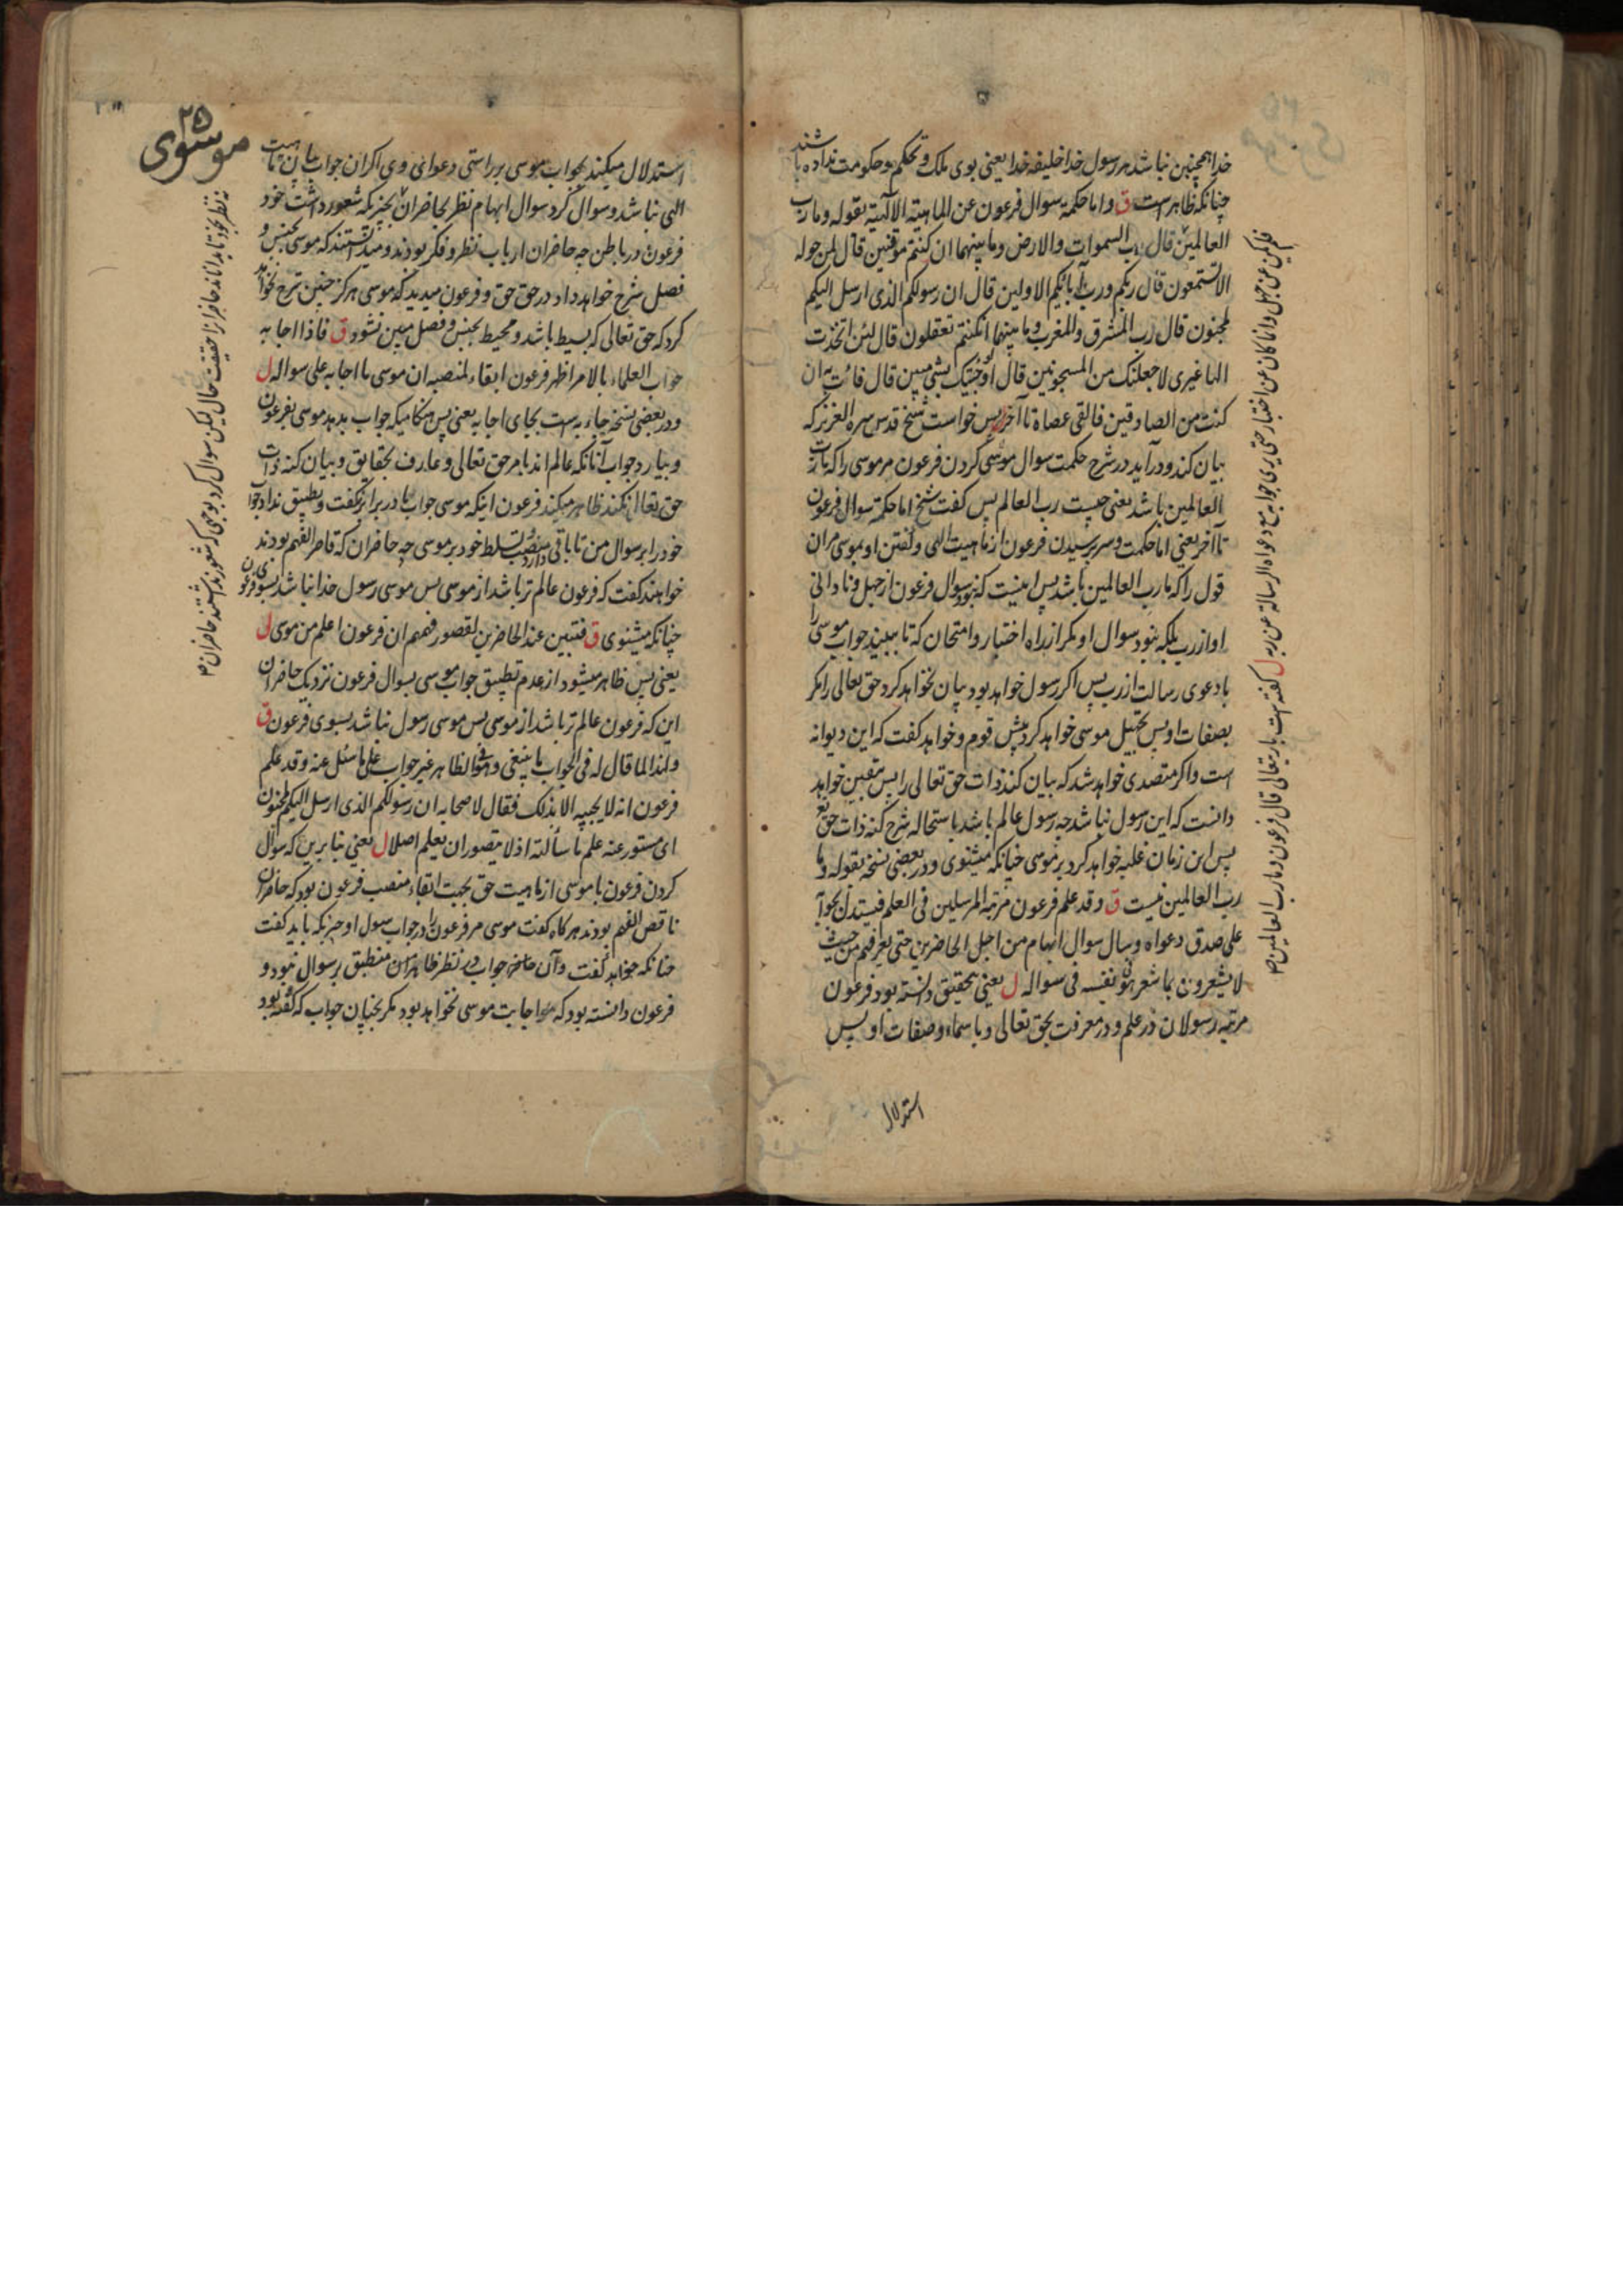 خدا همچنین نباشد هر رسول خدا خلیفه خدا یعنی بوی ملک و تحکم و حکومت نداده باشند
چنانکه ظاهرست ق واما حکمة سوال فرعون عن الماهیته الالهیة بقوله وما رب
العالمین قال رب السموات والارض وما بینهما ان کنتم موقنین قال لمن حوله
الا تستمعون قال ربکم ورب آبائکم الاولین قال ان رسولکم الذی ارسل الیکم
لمجنون قال رب المشرق والمغرب وما بینهما انکنتم تعقلون قال لئن اتخذت
الها غیری لاجعلنک من المسجونین قال اوجئتک بشی مبین قال فائت به ان
کنت من الصادقین فالقی عصاه تا آخر پس خواست شیخ قدس سره العزیز که
بیان کند و درآید در شرح حکمت سوال موسی کردن فرعون مر موسی را که ما رب
العالمین باشد یعنی چیست رب العالم پس کفت شیخ اما حکمة سوال فرعون
تا آخر یعنی اما حکمت و سر پرسیدن فرعون از ماهیت الهی و کفتن او بموسی مران
قول را که ما رب العالمین باشد پس اینست که نبود سوال فرعون از جهل و نادانی
او از رب بلکه نبود سوال او مکر از راه اختبار و امتحان که تا ببیند جواب موسی را
با دعوی رسالت از رب پس اکر رسول خواهد بود بیان نخواهد کرد حق تعالی را مکر
بصفات او پس تجهیل موسی خواهد کرد پیش قوم و خواهد کفت که این دیوانه
است و اکر متصدی خواهد شد که بیان کند ذات حق تعالی را پس متعین خواهد
دانست که این رسول نباشد چه رسول عالم باشد باستحاله شرح کنه ذات حق تع
پس این زمان غلبه خواهد کرد بر موسی چنانکه میشنوی و در بعضی نسخه بقوله و ما
رب العالمین نیست ق وقد علم فرعون مرتبه المرسلین فی العلم فیستدل بجوابه
علی صدق دعواه وسال سوال ایهام من اجل الحاضرین حتی یعرفهم من حیث
لا یشعرون بما شعر هو نفسه فی سواله ل یعنی بتحقیق دانسته بود فرعون
مرتبه رسولان در علم و در معرفت بحق تعالی و باسماء و صفات او پس
استدلال
فلم یکن عن جهل وانما کان عن اختبار حتی یری جوابه مع دعواه الرسالة عن ربه ل کفته است باریتعالی قال فرعون وما رب العالمین ص
۲۵
موسوی
استدلال میکند بجواب موسی بر راستی دعوای وی اکر آن جواب بیان ماهیت
الهی نباشد و سوال کرد سوال ایهام نظر بحاضران بچیزیکه شعور داشت خود
فرعون در باطن چه حاضران ارباب نظر و فکر بودند و میدانستند که موسی بجنس و
فصل شرح خواهد داد در حق حق و فرعون میدید که موسی هرکز چنین شرح نخواهد
کرد که حق تعالی که بسیط باشد و محیط بجنس و فصل مبین نشود ق فاذا اجابه
جواب العلماء بالامر اظهر فرعون ابقاء لمنصبه ان موسی ما اجابه علی سواله ل
و در بعضی نسخه جاء به است بجای اجابه یعنی پس هنکامیکه جواب بدهد موسی بفرعون
و بیارد جواب آنانکه عالم اند بامر حق تعالی و عارف بحقایق و بیان کنه ذات
حق تعا انکند ظاهر میکند فرعون اینکه موسی جواب ما در برابر نکفت و تطبیق نداد جواب
خود را بر سوال من تا باقی دارد منصب تسلط خود بر موسی چه حاضران که قاصر الفهم بودند
خواهند کفت که فرعون عالم تر باشد از موسی پس موسی رسول خدا نباشد بسوی فرعون
چنانکه میشنوی ق فتبین عند الحاضرین لقصور فهمهم ان فرعون اعلم من موسی ل
یعنی پس ظاهر میشود از عدم تطبیق جواب موسی بسوال فرعون نزدیک حاضران
این که فرعون عالم تر باشد از موسی پس موسی رسول نباشد بسوی فرعون ق
ولهذا لما قال له فی الجواب ما ینبغی وهو فی الظاهر غیر جواب علی ما سئل عنه وقد علم
فرعون انه لا یجیبه الا بذلک فقال لاصحابه ان رسولکم الذی ارسل الیکم لمجنون
ای مستور عنه علم ما سألته اذ لا یتصور ان یعلم اصلا ل یعنی بنابرین که سوال
کردن فرعون با موسی از ماهیت حق بجهت ابقاء منصب فرعون بود که حاضران
ناقص الفهم بودند هرکاه کفت موسی مر فرعون را در جواب سول او چیزیکه باید کفت
چنانکه خواهد کفت و آن جواب در نظر ظاهر منطبق بر سوال نبود و
فرعون دانسته بود که اجابت موسی نخواهد بود مکر بچنان جواب که کفته بود
نه نظر بخود تا بداناند حاضرانرا حقیقت حال لیکن سوال کرد بوجهی که شعور نداشتند حاضران ص